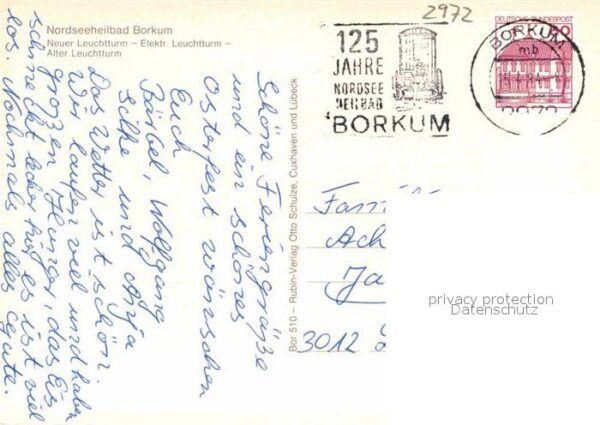 Nordseeheilbad Borkum
Neuer Leuchtturm – Elektr. Leuchtturm –
Alter Leuchtturm
Schöne Feriengrüße
und ein schönes
Osterfest wünschen
Euch
Bärbel, Wolfgang
Silke und Anja
Das Wetter ist schön.
Wir laufen viel und haben
großen Hunger, das Eis
schmeckt lecker hier, es ist viel
los. Nochmals alles Gute.
Bor 510 – Rubin-Verlag Otto Schulze, Cuxhaven und Lübeck
2972
125
JAHRE
NORDSEE
HEILBAD
BORKUM
DEUTSCHE BUNDESPOST
BORKUM
mb
2972
Fam
Ach
Ja
3012
privacy protection
Datenschutz